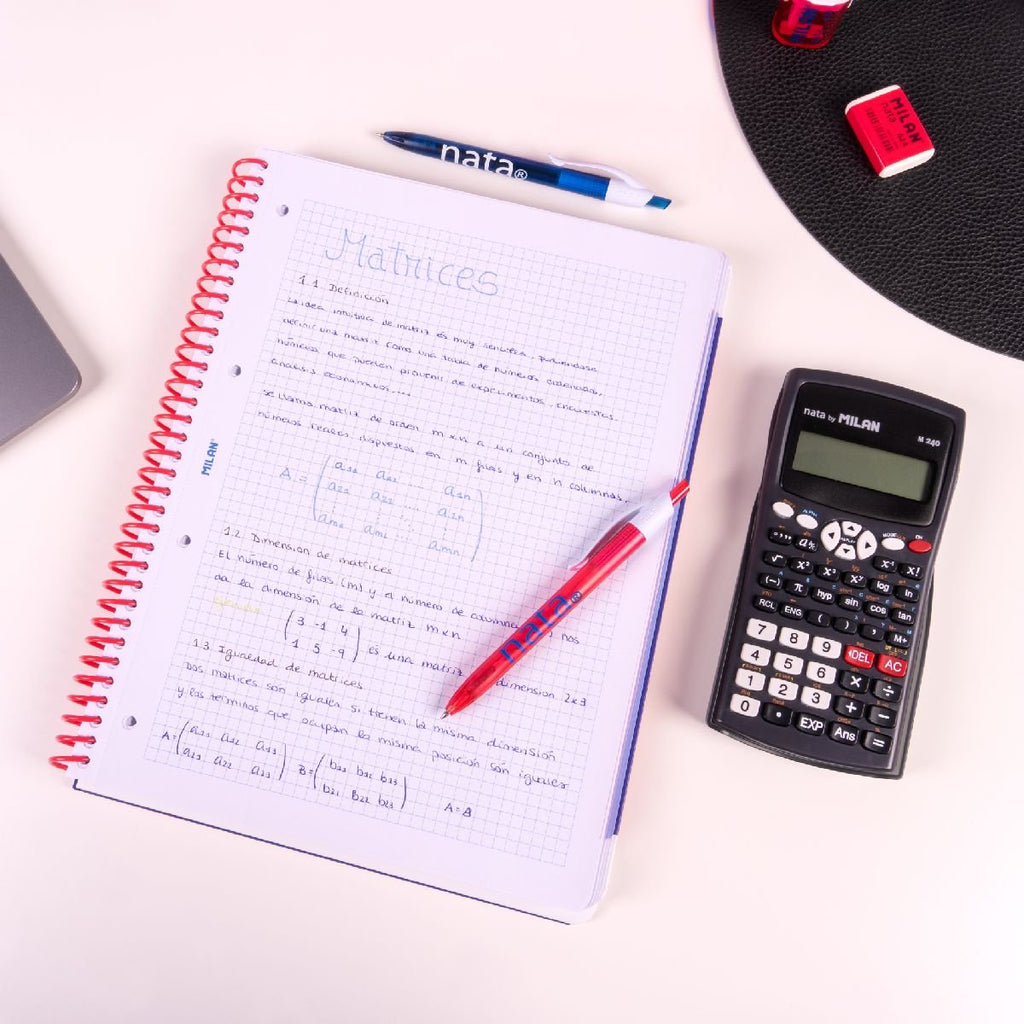 nata®
MILAN
nata
624
Matrices
1.1 Definición
La idea intuitiva de matriz es muy sencilla, pudiéndose
definir una matriz como una tabla de números ordenados,
números que pueden provenir de experimentos, encuestas,
análisis económicos....
Se llama matriz de orden m x n a un conjunto de
números reales dispuestos en m filas y en n columnas.
MILAN®
A = (a11 a12 a1n
a21 a22 ... a2n
am1 am2 amn)
1.2. Dimension de matrices
El número de filas (m) y el número de columnas nos
da la dimensión de la matriz m x n
(3 -1 4
1 5 -9) es una matriz dimension 2x3
1.3 Igualdad de matrices
Dos matrices son iguales si tienen la misma dimensión
y los terminos que ocupan la misma posición son iguales
A=(a11 a12 a13 B=(b11 b12 b13
a23) b21 b22 b23) A=B
nata®
nata by MILAN
M 240
MODE
ON
a b/c
x⁻¹ x!
√ x² x³ xʸ log ln
(-) π hyp sin cos tan
RCL ENG ( ) , M+
7 8 9 DEL AC
4 5 6 × ÷
1 2 3 + −
0 • EXP Ans =